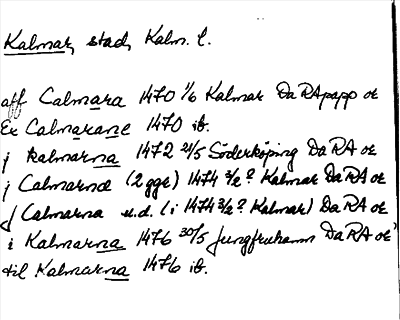 Kalmar, stad, Kalm. l.
aff Calmara 1470 1/6 Kalmar DaRApapp or
Ex Calmarane 1470 ib.
j kalmarna 1472 21/5 Söderköping DaRA or
j Calmarnd (2 ggr) 1474 3/2? Kalmar DaRA or
J Calmarna u.d. (i 1474 3/2? Kalmar) DaRA or
i Kalmarna 1476 30/5 Jungfruhamn DaRA or
til Kalmarna 1476 ib.